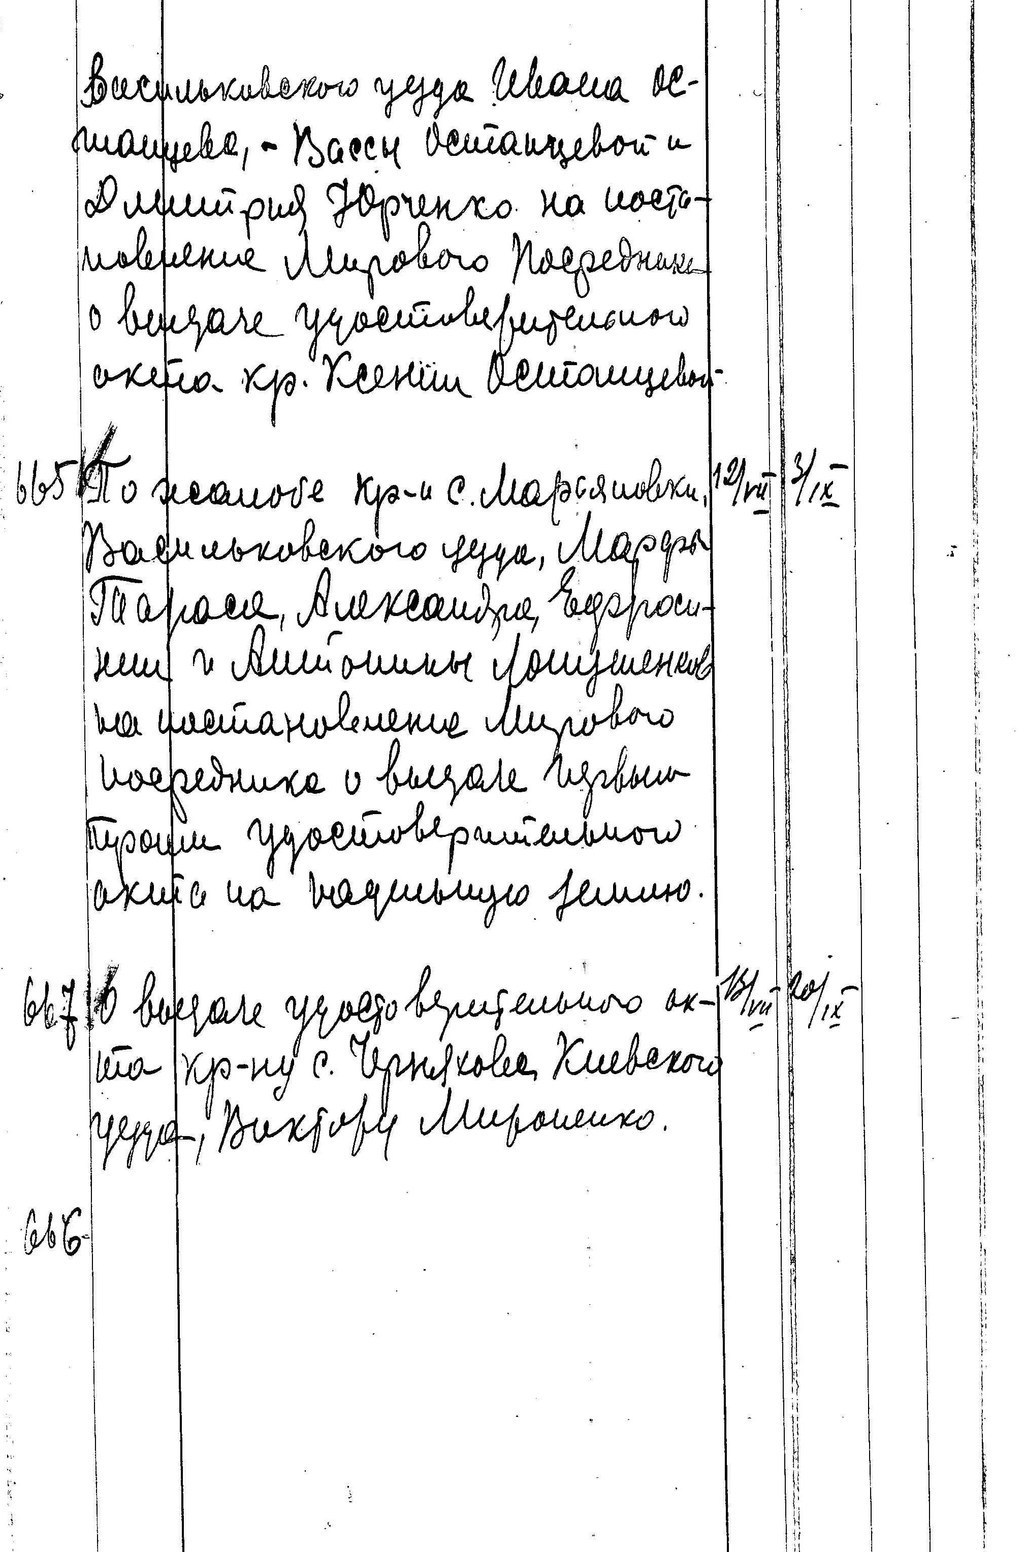 Васильковского уезда Ивана Ос-
танцева, - Вассы Останцевой и
Дмитрия Юрченко на поста-
новление Мирового Посредника
о выдаче удостоверительного
акта кр. Ксении Останцевой
665 По жалобе кр-н с. Марьяновки, 12/VII 3/IX
Васильковского уезда, Марфы
Тараса, Александра, Ефроси-
нии и Антонины
на постановление Мирового
посредника о выдаче первым
троим удостоверительного
акта на надельную землю.
667 О выдаче удостоверительного ак- 13/VII 20/IX
та кр-ну с. Черняхова, Киевского
уезда, Виктору Мироненко.
666